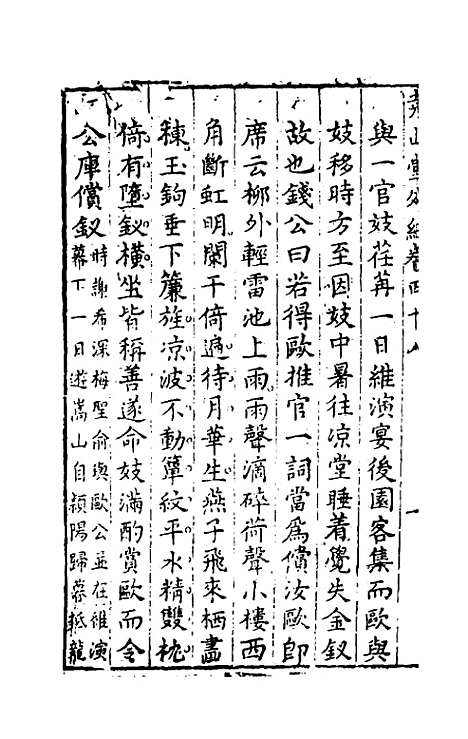 堯山堂外紀卷四十八
一
與一官妓荏苒一日維演宴後園客集而歐與
妓移時方至因妓中暑往凉堂睡着覺失金釵
故也錢公曰若得歐推官一詞當爲償汝歐即
席云柳外輕雷池上雨雨聲滴碎荷聲小樓西
角斷虹明闌干倚遍待月華生燕子飛來栖畵
棟玉鉤垂下簾旌凉波不動簟紋平水精雙枕
倚有墮釵橫坐皆稱善遂命妓滿酌賞歐而令
公庫償釵時謝希深梅聖俞與歐公並在維演
幕下一日遊嵩山自潁陽歸暮抵龍